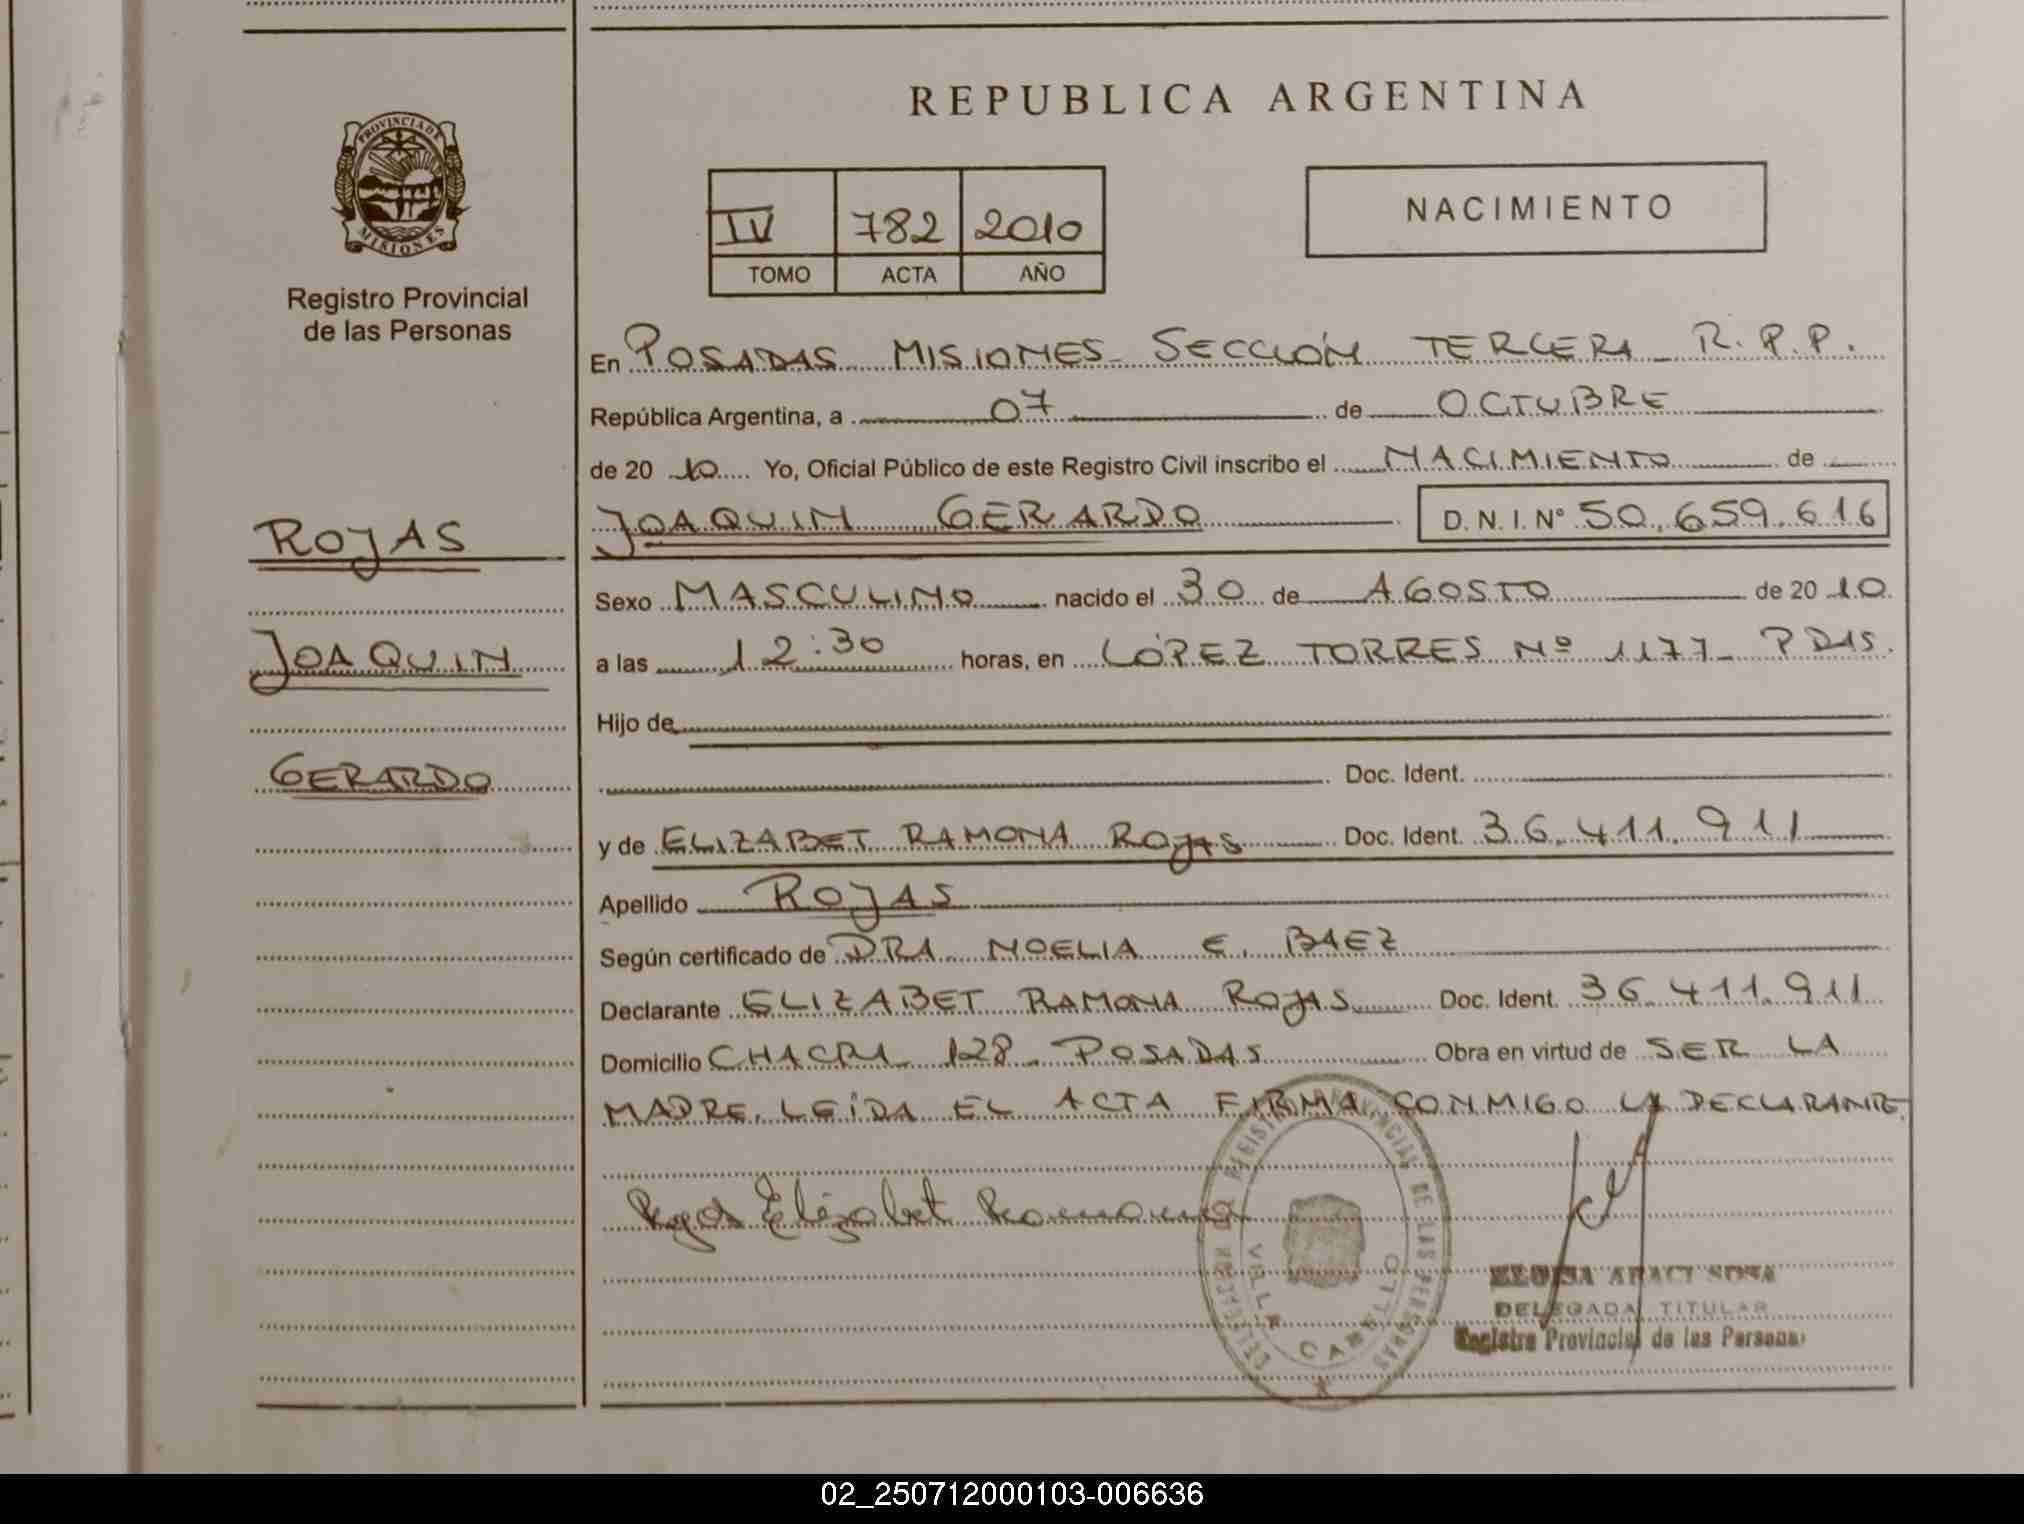 PROVINCIA DE
MISIONES
Registro Provincial
de las Personas
ROJAS
JOAQUIN
GERARDO
REPUBLICA ARGENTINA
IV 782 2010
TOMO ACTA AÑO
NACIMIENTO
En POSADAS MISIONES- SECCIÓN TERCERA- R.P.P.
República Argentina, a 07 de OCTUBRE
de 20 10 Yo, Oficial Público de este Registro Civil inscribo el NACIMIENTO de
JOAQUIN GERARDO D. N. I. Nº 50.659.616
Sexo MASCULINO nacido el 30 de AGOSTO de 20 10
a las 12:30 horas, en LÓPEZ TORRES Nº 1177- PDAS.
Hijo de
Doc. Ident.
y de ELIZABET RAMONA ROJAS Doc. Ident. 36.411.911
Apellido ROJAS
Según certificado de DRA NOELIA E. BAEZ
Declarante ELIZABET RAMONA ROJAS Doc. Ident. 36.411.911
Domicilio CHACRA 128- POSADAS Obra en virtud de SER LA
MADRE. LEÍDA EL ACTA FIRMA CONMIGO LA DECLARANTE.
Rojas Elizabet Ramona
REGISTRO PROVINCIAL DE LAS PERSONAS
VILLA CABELLO
ELOISA ARACI SOSA
DELEGADA TITULAR
Registro Provincial de las Personas
02_250712000103-006636